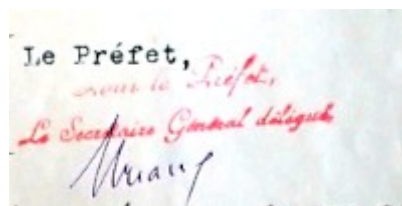 Le Préfet,
Pour le Préfet,
Le Secrétaire Général délégué,